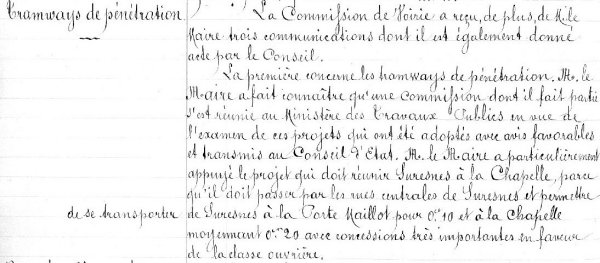 Tramways de pénétration
La Commission de Voirie a reçu, de plus, de M. le
Maire trois communications dont il est également donné
acte par le Conseil.
La première concerne les tramways de pénétration. M. le
Maire a fait connaître qu'une Commission dont il fait partie
s'est réunie au Ministère des Travaux Publics en vue de
l'examen de ces projets qui ont été adoptés avec avis favorables
et transmis au Conseil d'Etat. M. le Maire a particulièrement
appuyé le projet qui doit réunir Suresnes à la Chapelle, parce
qu'il doit passer par les rues centrales de Suresnes et permettre
de se transporter
de Suresnes à la Porte Maillot pour 0.f 10 et à la Chapelle
moyennant 0.f 20 avec concessions très importantes en faveur
de la classe ouvrière.